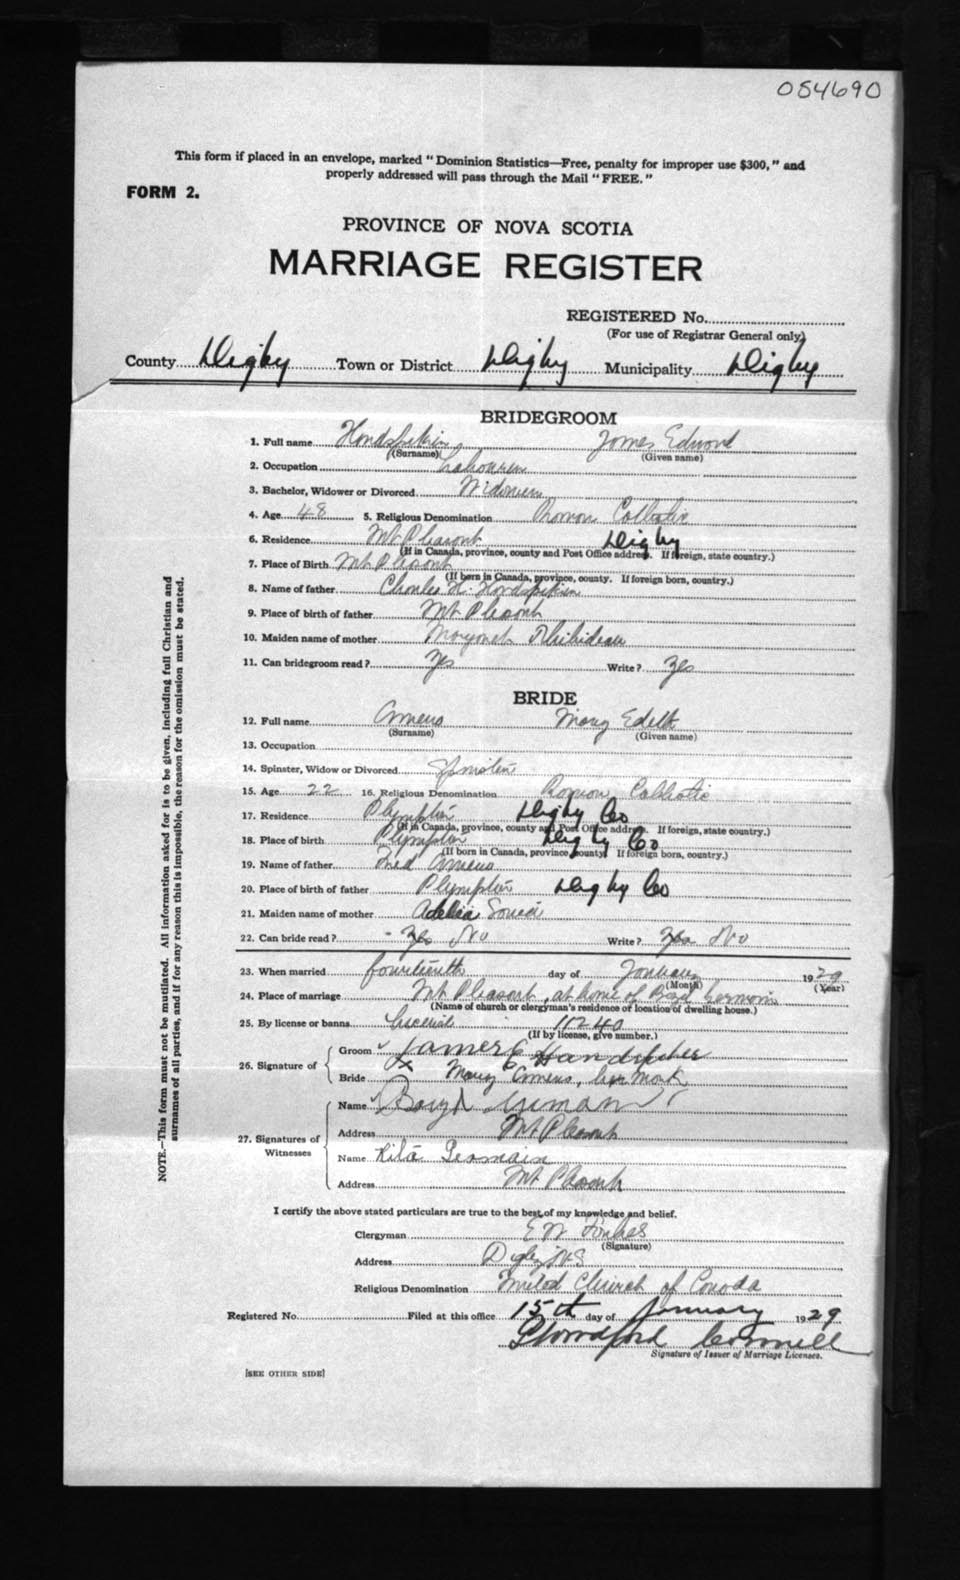 054690
This form if placed in an envelope, marked "Dominion Statistics—Free, penalty for improper use $300," and
properly addressed will pass through the Mail "FREE."
FORM 2.
PROVINCE OF NOVA SCOTIA
MARRIAGE REGISTER
REGISTERED No.
(For use of Registrar General only)
County Digby Town or District Digby Municipality Digby
BRIDEGROOM
1. Full name James Edward
(Surname) (Given name)
2. Occupation Labourer
3. Bachelor, Widower or Divorced Widower
4. Age 48 5. Religious Denomination Roman Catholic
6. Residence Mt Pleasant Digby
(If in Canada, province, county and Post Office address. If foreign, state country.)
7. Place of Birth Mt Pleasant
(If born in Canada, province, county. If foreign born, country.)
8. Name of father Charles H.
9. Place of birth of father Mt Pleasant
10. Maiden name of mother Margaret Thibideau
11. Can bridegroom read? Yes Write? Yes
BRIDE
12. Full name Amero Mary Edith
(Surname) (Given name)
13. Occupation
14. Spinster, Widow or Divorced Spinster
15. Age 22 16. Religious Denomination Roman Catholic
17. Residence Plympton Digby Co
(If in Canada, province, county and Post Office address. If foreign, state country.)
18. Place of birth Plympton Digby Co
(If born in Canada, province, county. If foreign born, country.)
19. Name of father Fred Amero
20. Place of birth of father Plympton Digby Co
21. Maiden name of mother Adelia
22. Can bride read? - Yes No Write? Yes No
23. When married fourteenth day of January 1929
(Month) (Year)
24. Place of marriage Mt Pleasant, at home of
(Name of church or clergyman's residence or location of dwelling house.)
25. By license or banns License 11240
(If by license, give number.)
26. Signature of
Groom James E
Bride X Mary Amero, her mark
27. Signatures of
Witnesses
Name
Address Mt Pleasant
Name Rita Germain
Address Mt Pleasant
I certify the above stated particulars are true to the best of my knowledge and belief.
Clergyman E W Forbes
(Signature)
Address Digby, N.S
Religious Denomination United Church of Canada
Registered No. Filed at this office 15th day of January 1929
Signature of Issuer of Marriage Licenses.
[SEE OTHER SIDE]
NOTE.—This form must not be mutilated. All information asked for is to be given, including full Christian and
surnames of all parties, and if for any reason this is impossible, the reason for the omission must be stated.